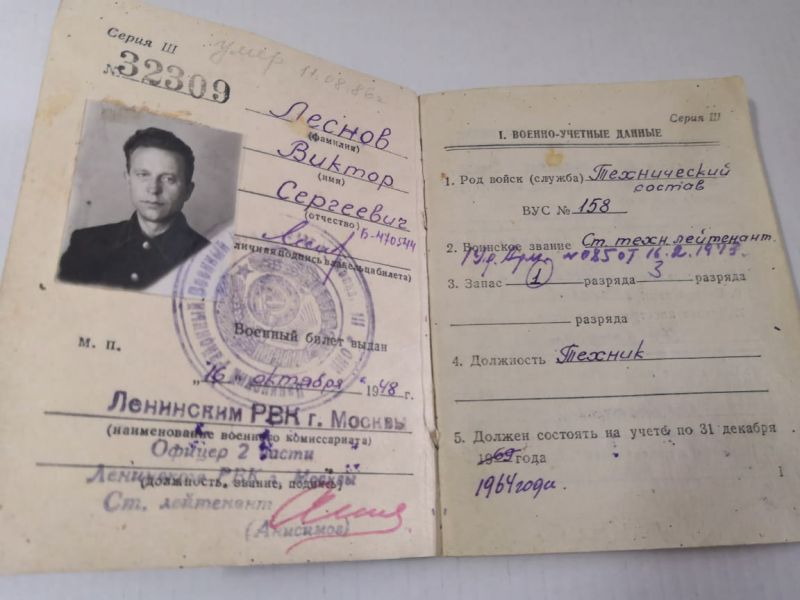 Серия Ш
умер 11.08.86г
№ 32309
Леснов
(фамилия)
Виктор
(имя)
Сергеевич
(отчество) Б-470544
личная подпись владельца билета)
Военный билет выдан
М. П.
„16" октября 1948 г.
Ленинским РВК г. Москвы
(наименование военного комиссариата)
Офицер 2 части
Ленинского РВК г. Москвы
(должность, звание, подпись)
Ст. лейтенант
(Анисимов)
Серия Ш
I. ВОЕННО-УЧЕТНЫЕ ДАННЫЕ
1. Род войск (служба) Технический
состав
ВУС № 158
2. Воинское звание Ст. техн. лейтенант
№ 085 от 16.2.
3. Запас 1 разряда 3 разряда
разряда
4. Должность Техник
5. Должен состоять на учете по 31 декабря
1969 года
1964 годи.
1